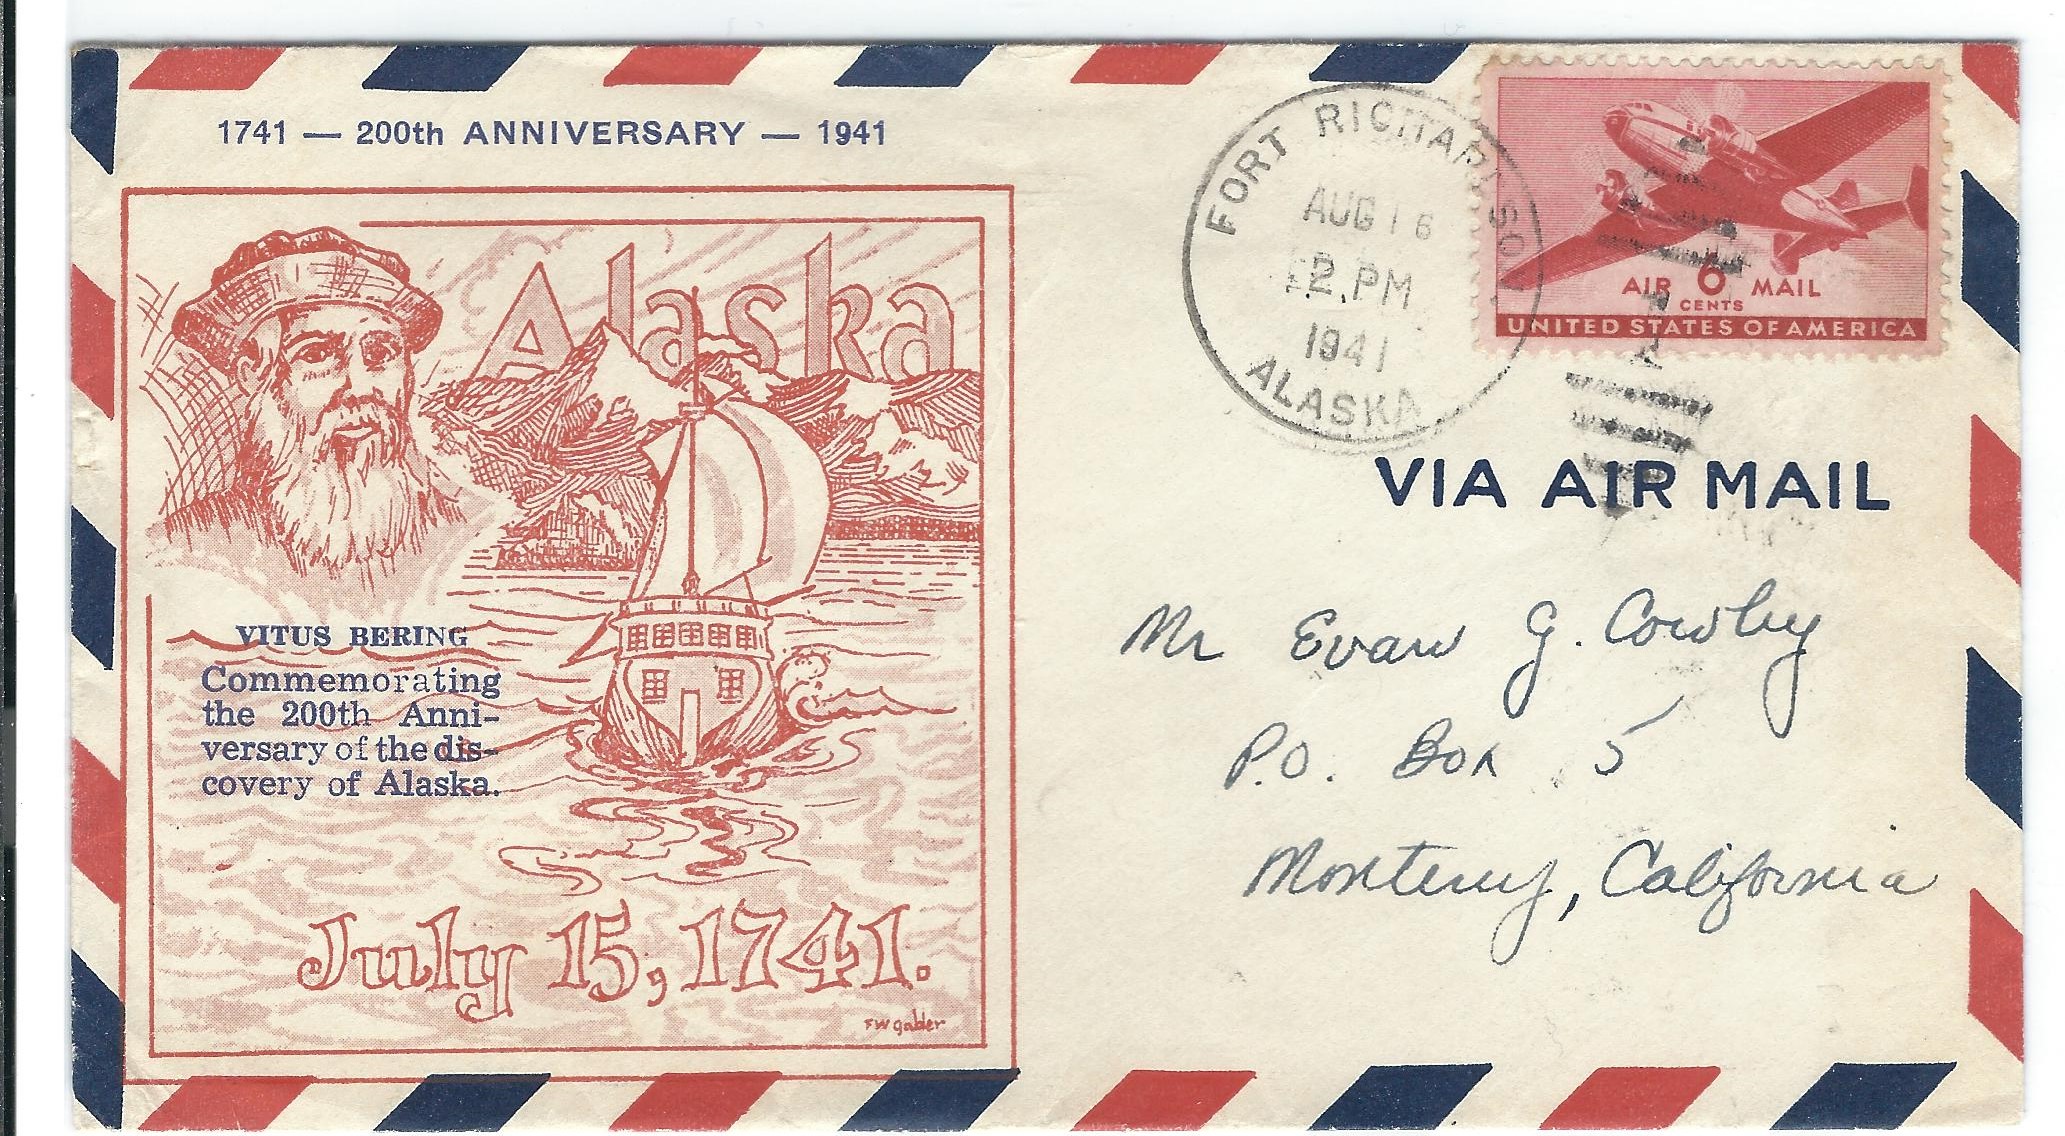 1741 — 200th ANNIVERSARY — 1941
Alaska
VITUS BERING
Commemorating
the 200th Anni-
versary of the dis-
covery of Alaska.
July 15, 1741.
FW Gabler
FORT RICHARDSON
AUG 16
2 PM
1941
ALASKA
AIR 6 MAIL
CENTS
UNITED STATES OF AMERICA
VIA AIR MAIL
Mr Evan G. Cowby
P.O. Box 5
Monterey, California